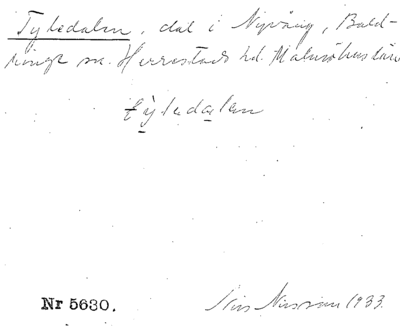 Tyledalen, dal i Nyvång, Bald-
ringe sn. Herrestads hd. Malmöhus län
tỳledalen
Nr 5630.
Nils Nilsson 1933.